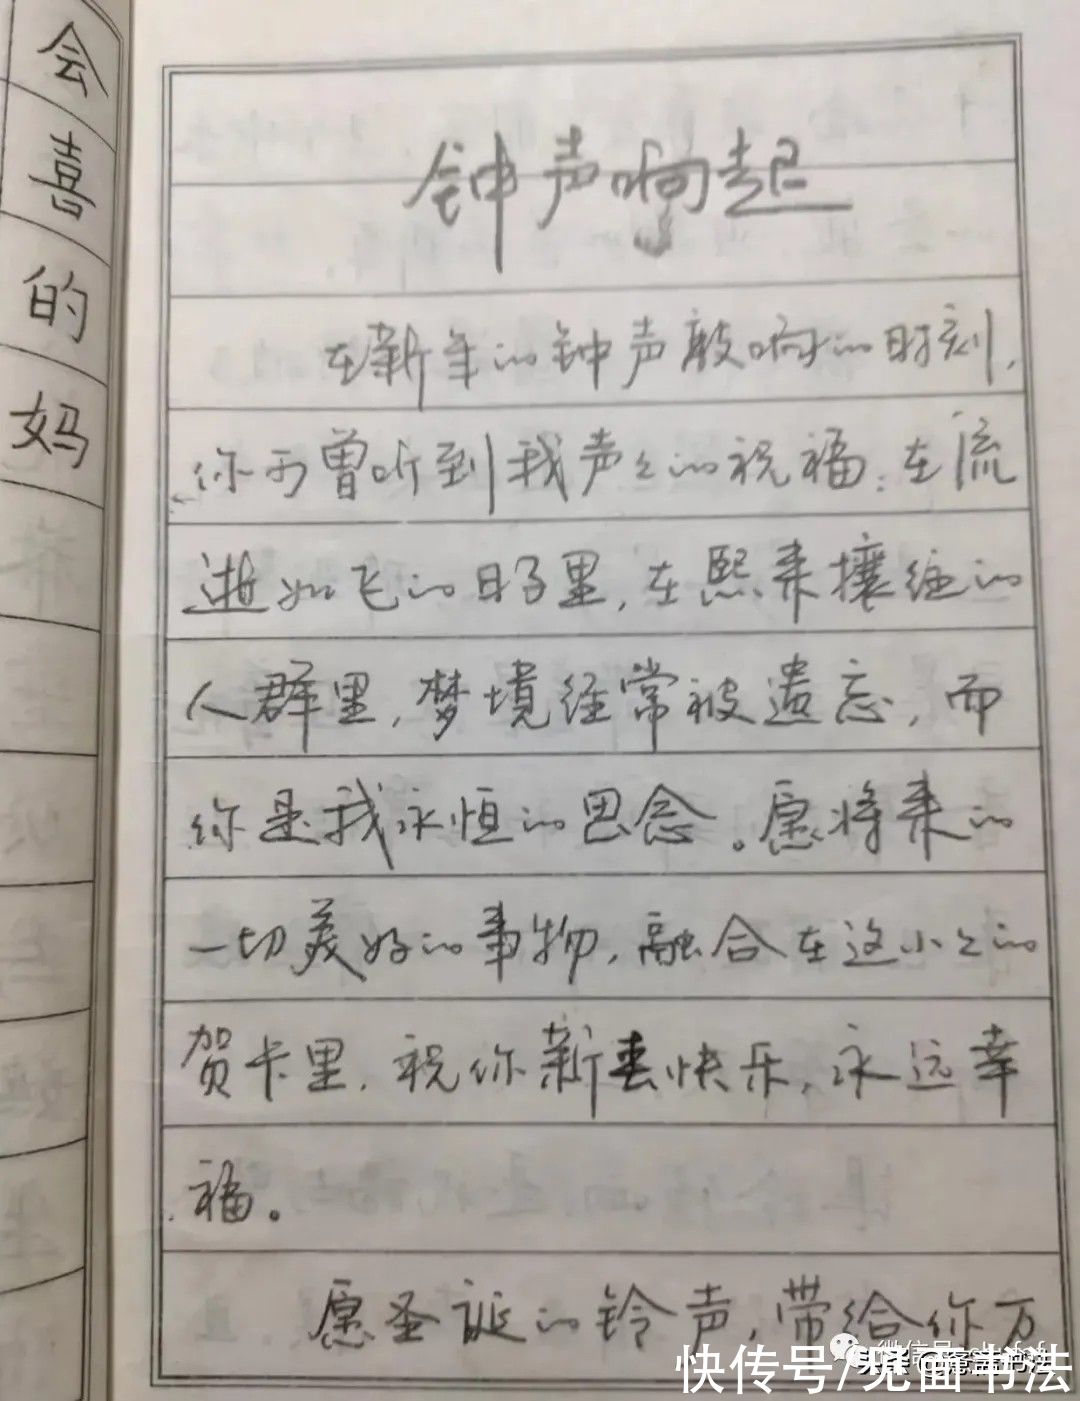 会
喜
的
妈
钟声响起
在新年的钟声敲响的时刻，
你可曾听到我声声的祝福；在流
逝如飞的日子里，在熙来攘往的
人群里，梦境经常被遗忘，而
你是我永恒的思念。愿将来的
一切美好的事物，融合在这小小的
贺卡里，祝你新春快乐，永远幸
福。
愿圣诞的铃声，带给你万
快传号/见面书法